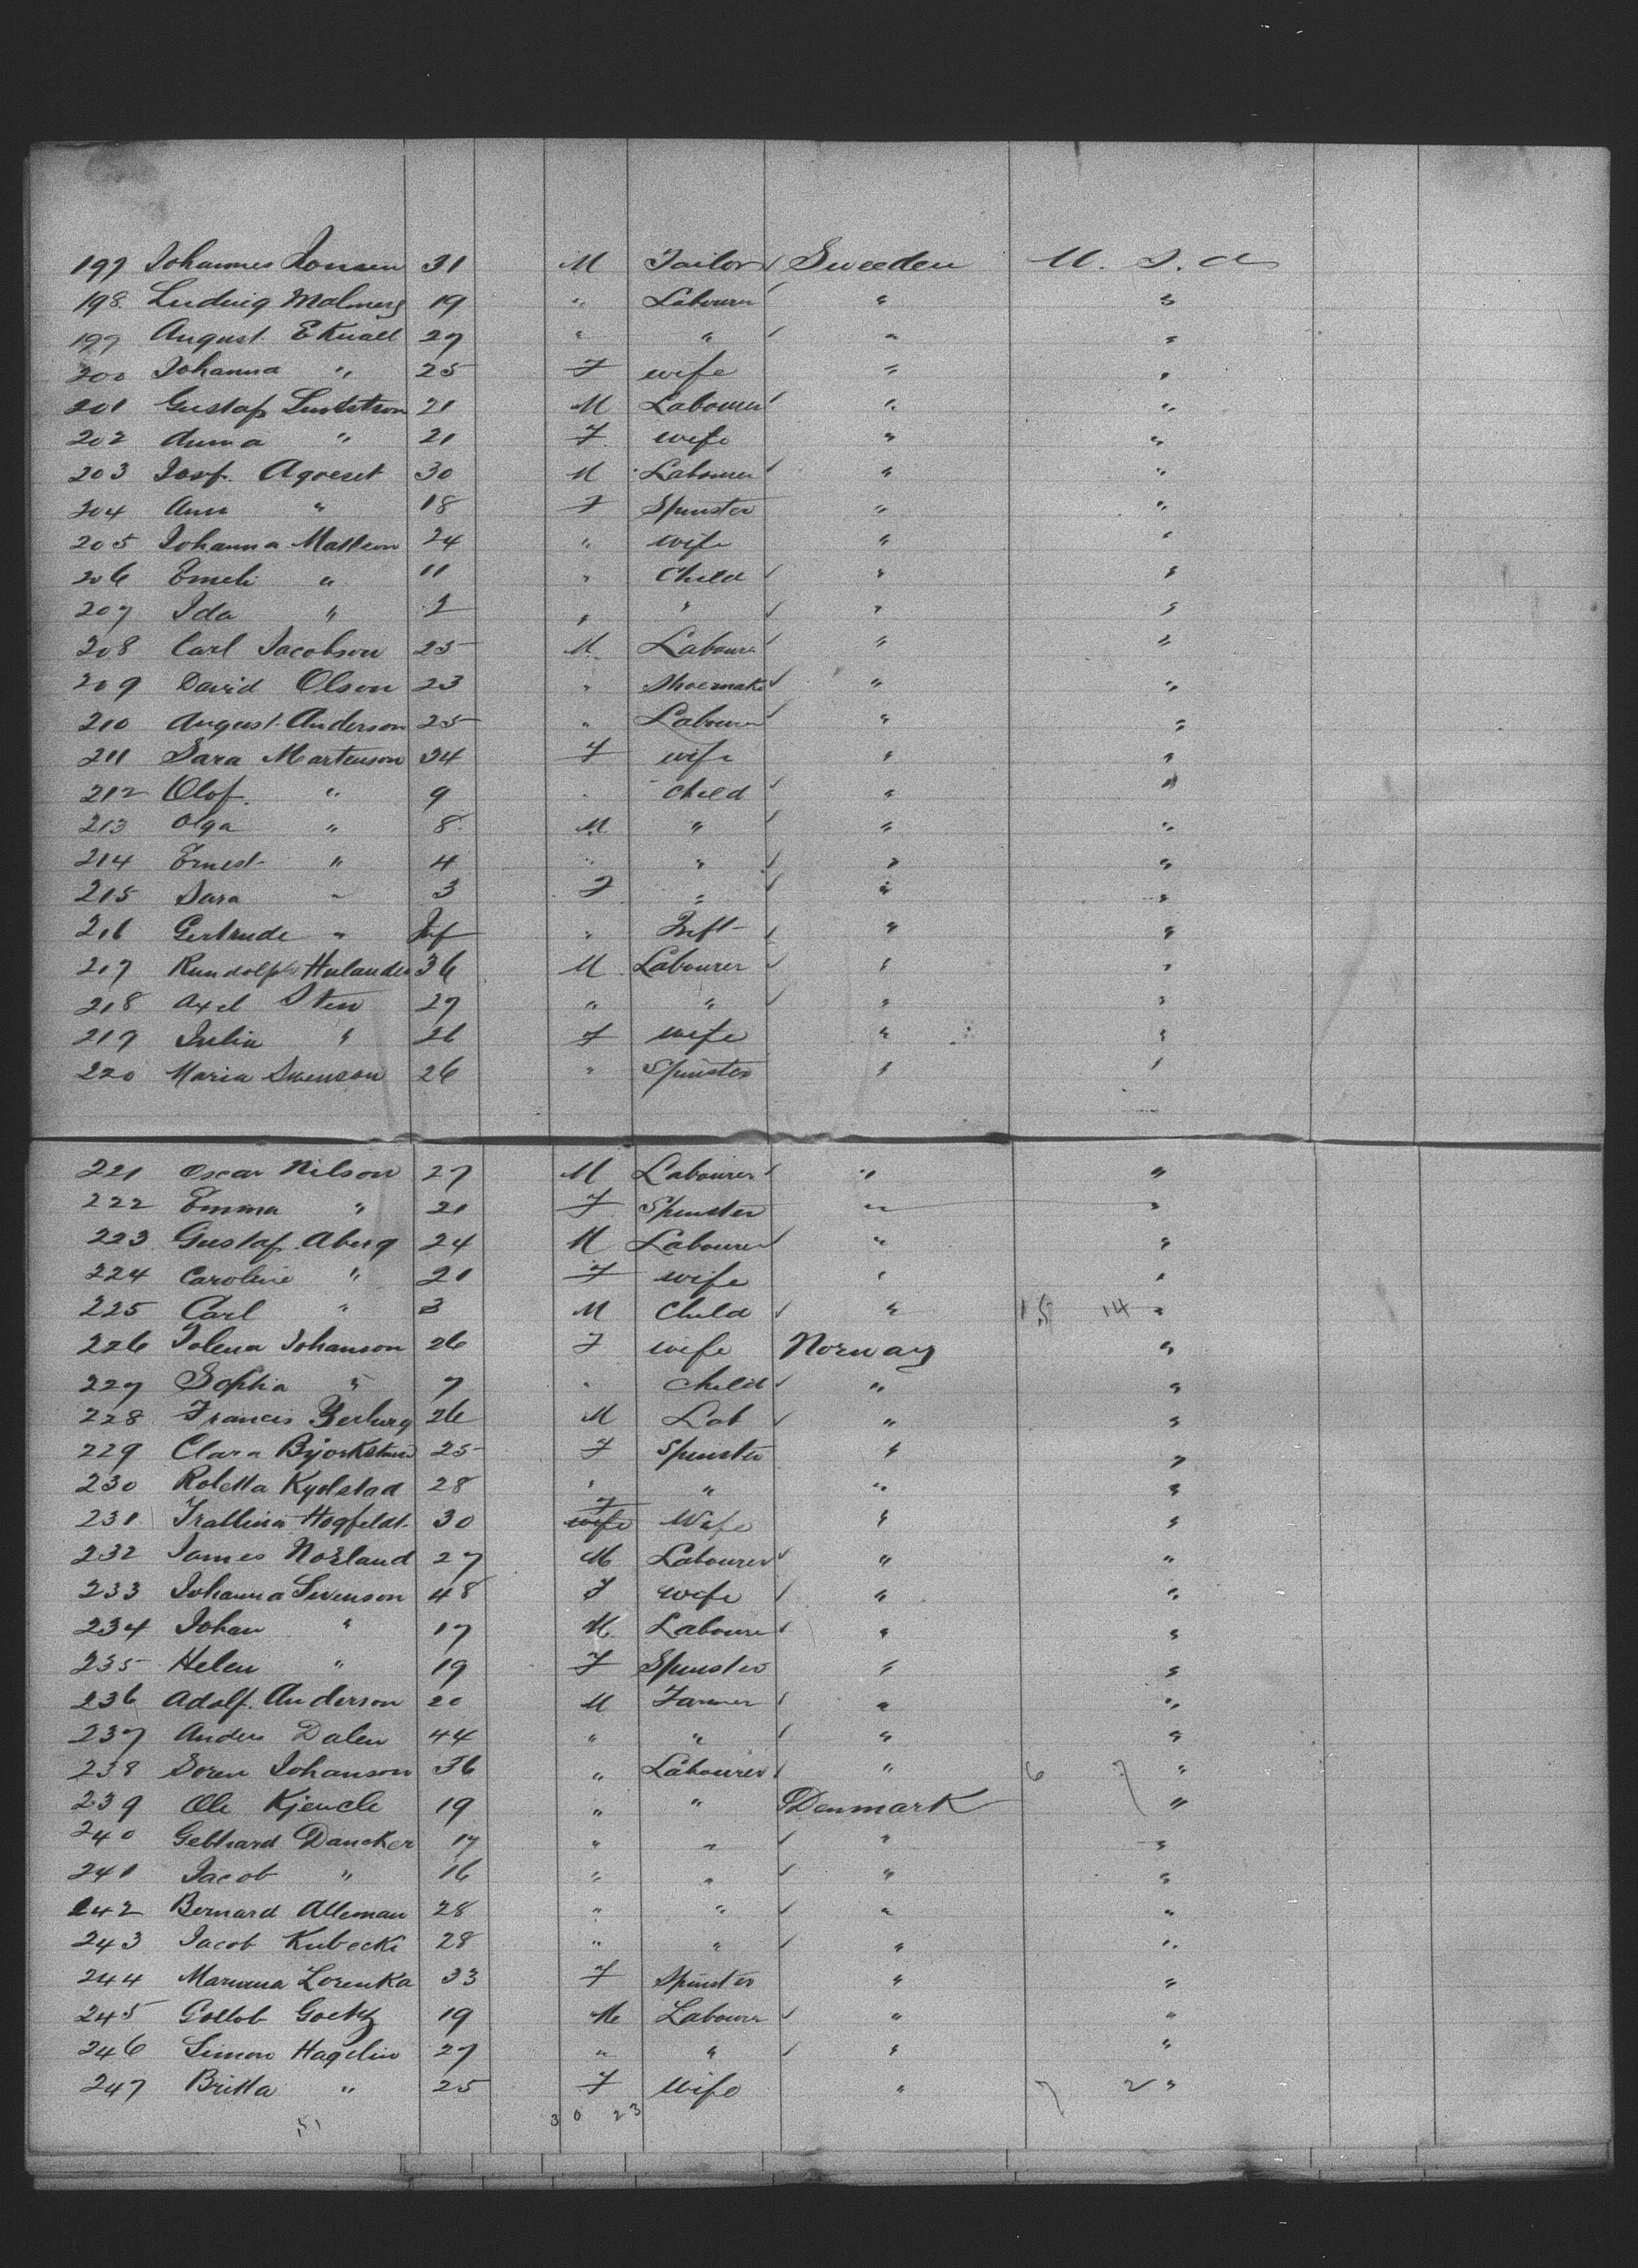 197 Johannes Jonsen 31 M Tailor ✓ Sweeden U. S. a
198. Ludwig Malmerg 19 " Labourer ✓ " "
199 August Eknall 27 " " ✓ " "
200 Johanna " 25 F wife " "
201 Gustaf 21 M Labourer ✓ " "
202 Anna " 21 F wife " "
203 Josf. 30 M Labourer ✓ " "
204 Ann " 18 F Spinster " "
205 Johanna 24 " wife " "
206 Emeli " 11 " Child ✓ " "
207 Ida " 2 " " ✓ " "
208 Carl Jacobson 25 M Labourer ✓ " "
209 David Olson 23 " Shoemaker ✓ " "
210 August Anderson 25 " Labourer ✓ " "
211 Sara Martenson 34 F wife " "
212 Olof. " 9 " child ✓ " "
213 Olga " 8 M " ✓ " "
214 Ernest " 4 " " ✓ " "
215 Sara " 3 F " ✓ " "
216 Gertrude " Inf " Inft ✓ " "
217 Rundolph Hulander 36 M Labourer ✓ " "
218 Axel Sten 27 " " ✓ " "
219 Julia " 26 F wife " "
220 Maria Swenson 26 " Spinster " "
221 Oscar Nilson 27 M Labourer ✓ " "
222 Emma " 21 F Spinster " "
223 Gustaf. Aberg 24 M Labourer ✓ " "
224 Caroline " 21 F wife " "
225 Carl " 3 M Child ✓ " 15 14 "
226 Johanson 26 F wife Norway "
227 Sophia " 7 " child ✓ " "
228 Francis 26 M Lab ✓ " "
229 Clara 25 F Spinster " "
230 Roletta Kydstad 28 " " " "
231 Hogfeldt 30 wife F Wife " "
232 James Norland 27 M Labourer ✓ " "
233 Johanna Svenson 48 F wife ✓ " "
234 Johan " 17 M Labourer ✓ " "
235 Helen " 19 F Spinster " "
236 Adolf. Anderson 20 M Farmer ✓ " "
237 Anders Dalen 44 " " ✓ " "
238 Soren Johanson 36 " Labourer ✓ " 6 7 "
239 Ole 19 " " Denmark "
240 Gebhard Dancker 17 " " ✓ " "
241 Jacob " 16 " " ✓ " "
242 Bernard Alleman 28 " " ✓ " "
243 Jacob Kubecki 28 " " ✓ " "
244 Lorenka 33 F Spinster " "
245 Gollob Goetz 19 M Labourer ✓ " "
246 Simon Hagelin 27 " " ✓ " "
247 Britta " 25 F Wife " 7 2 "
51 30 23